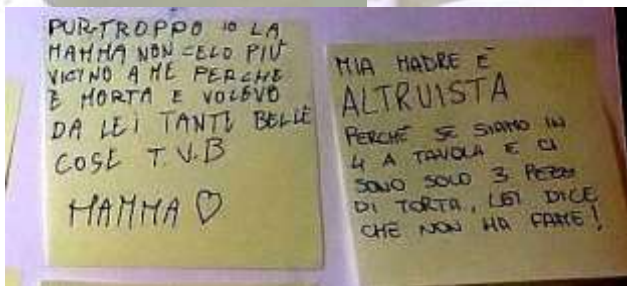 PURTROPPO IO LA
MAMMA NON CELO PIÙ
VICINO A ME PERCHE
È MORTA E VOLEVO
DA LEI TANTE BELLE
COSE T.V.B
MAMMA ♡
MIA MADRE È
ALTRUISTA
PERCHÉ SE SIAMO IN
4 A TAVOLA E CI
SONO SOLO 3 PEZZI
DI TORTA, LEI DICE
CHE NON HA FAME!